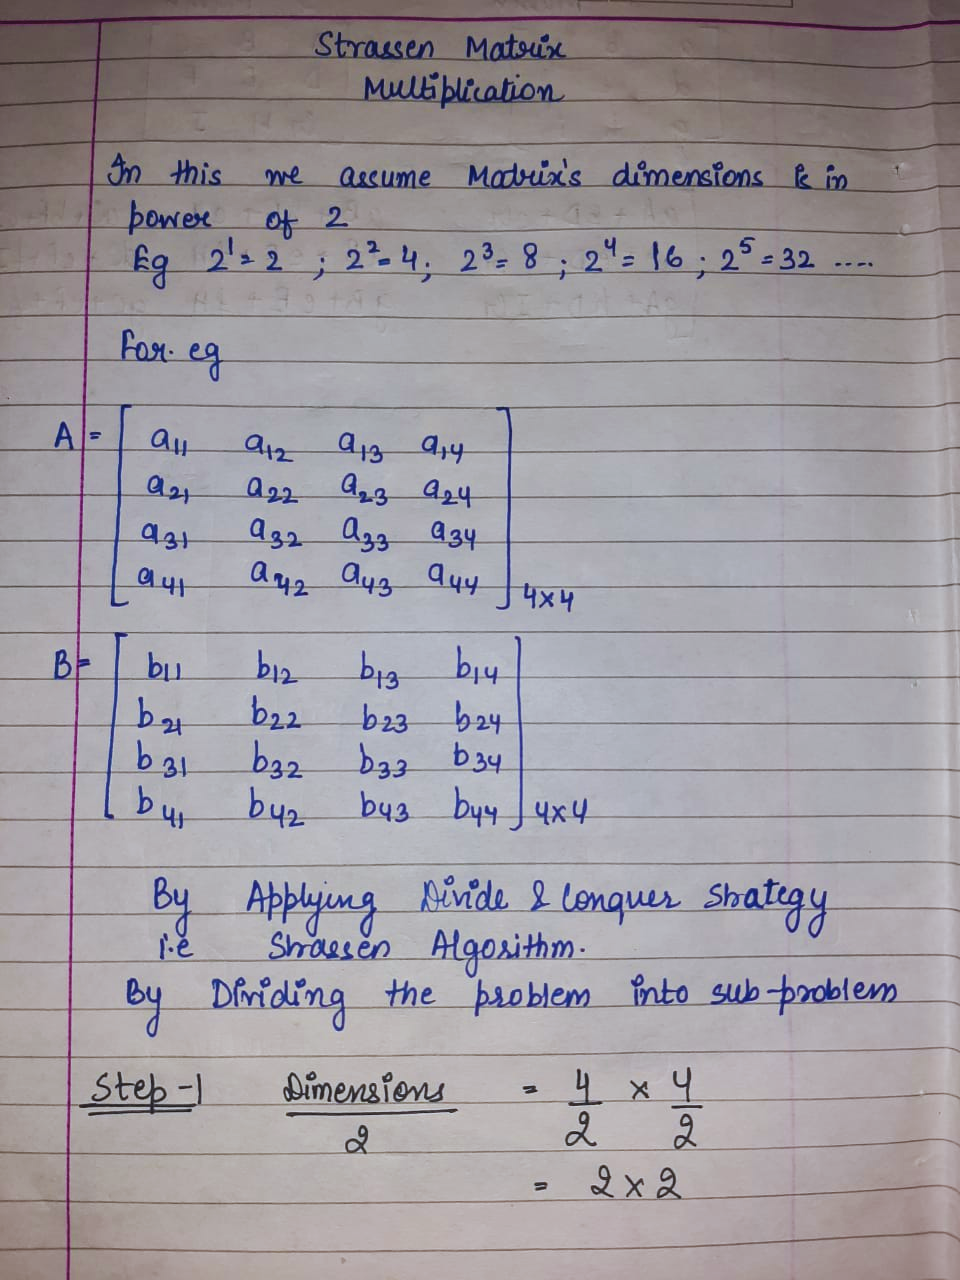 Strassen Matrix
Multiplication
In this we assume Matrix's dimensions is in
power of 2
Eg 2¹ = 2 ; 2² = 4; 2³ = 8 ; 2⁴ = 16 ; 2⁵ = 32 ....
For. eg
A = [ a11 a12 a13 a14
a21 a22 a23 a24
a31 a32 a33 a34
a41 a42 a43 a44 ] 4×4
B = [ b11 b12 b13 b14
b21 b22 b23 b24
b31 b32 b33 b34
b41 b42 b43 b44 ] 4×4
By Applying Divide & Conquer Strategy
i.e Strassen Algorithm.
By Dividing the problem into sub-problem
Step-1 Dimensions/2 = 4/2 × 4/2
= 2×2